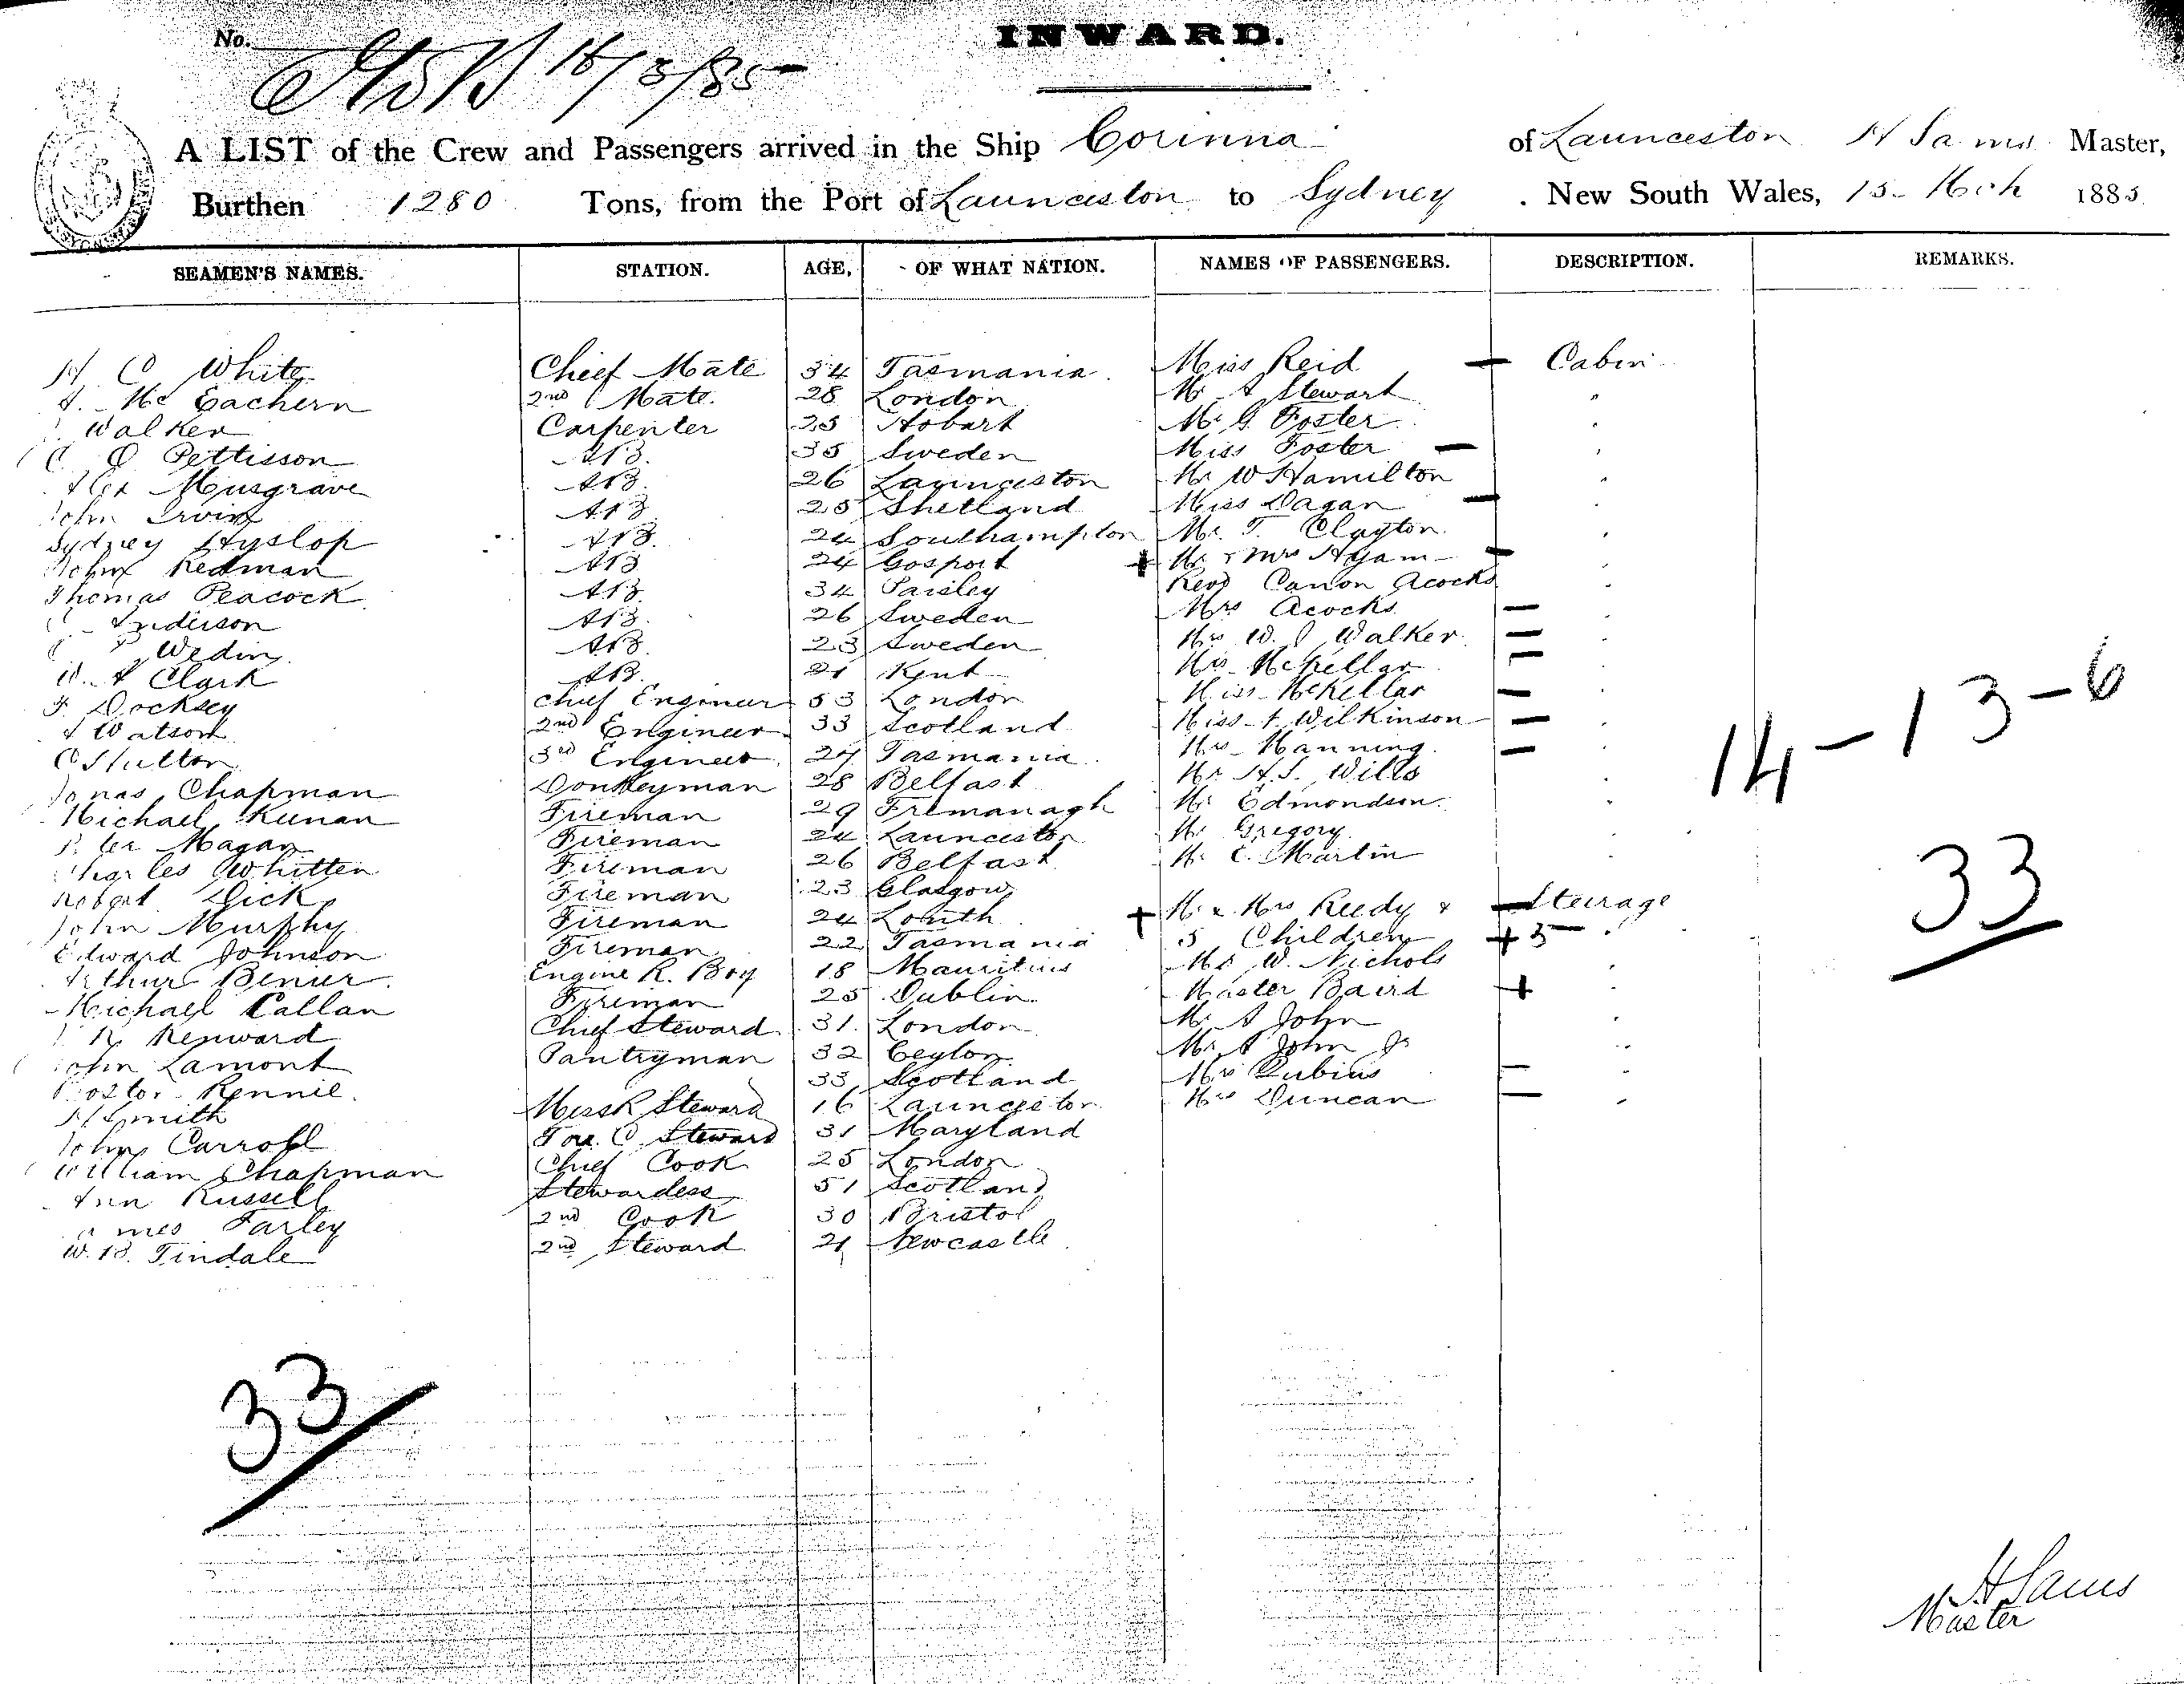 No.
INWARD.
16/3/85
A LIST of the Crew and Passengers arrived in the Ship Corinna of Launceston H Sams Master,
Burthen 1280 Tons, from the Port of Launceston to Sydney. New South Wales, 15 Mch 1885
SEAMEN'S NAMES. STATION. AGE, OF WHAT NATION. NAMES OF PASSENGERS. DESCRIPTION. REMARKS.
H C White Chief Mate 34 Tasmania Miss Reid — Cabin
A. Mc Eachern 2nd Mate 28 London Mr A Stewart "
Walker Carpenter 25 Hobart Mr G Foster "
Pettisson AB. 35 Sweden Miss Foster — "
Alex Musgrave AB. 26 Launceston Mr W Hamilton "
John Irvin AB 25 Shetland Miss Dagan — "
Sydney Hyslop AB. 24 Southampton Mr. T. Clayton "
John Redman AB 24 Gosport + Mr & Mrs Hyam — "
Thomas Peacock AB. 34 Paisley Revd Canon Acocks
Anderson AB. 26 Sweden Mrs Acocks — "
Weding AB. 23 Sweden Mrs W. J Walker — "
W. A Clark AB. 21 Kent Mrs McKellar — "
F. Docksey Chief Engineer 53 London Miss McKellar — "
A Watson 2nd Engineer 33 Scotland Miss A Wilkinson — "
C Hutton 3rd Engineer 27 Tasmania Mrs Manning — "
Jonas Chapman Donkeyman 28 Belfast Mr H. S. Wills
Michael Keenan Fireman 29 Frmanagh Mr Edmondson "
Peter Magan Fireman 24 Launceston Mr Gregory "
Charles Whitten Fireman 26 Belfast Mr C. Martin "
Robert Dick Fireman 23 Glasgow
John Murphy Fireman 24 Louth + Mr & Mrs Reedy & — Steerage
Edward Johnson Fireman 22 Tasmania 5 Children + 5 "
Arthur Benier Engine R. Boy 18 Mauritius Mr W. Nichols "
Michael Callan Fireman 25 Dublin Master Baird + "
R Kenward Chief Steward 31 London Mr A John "
John Lamont Pantryman 32 Ceylon Mr A John Jr "
Rennie 33 Scotland Mrs Rubius — "
H Smith Mess R Steward 16 Launceston Mrs Duncan — "
John Carroll For. C. Steward 31 Maryland
William Chapman Chief Cook 25 London
Ann Russell Stewardess 51 Scotland
James Farley 2nd Cook 30 Bristol
W. B. Tindale 2nd Steward 21 Newcastle
14-13-6
33
33
H Sams
Master